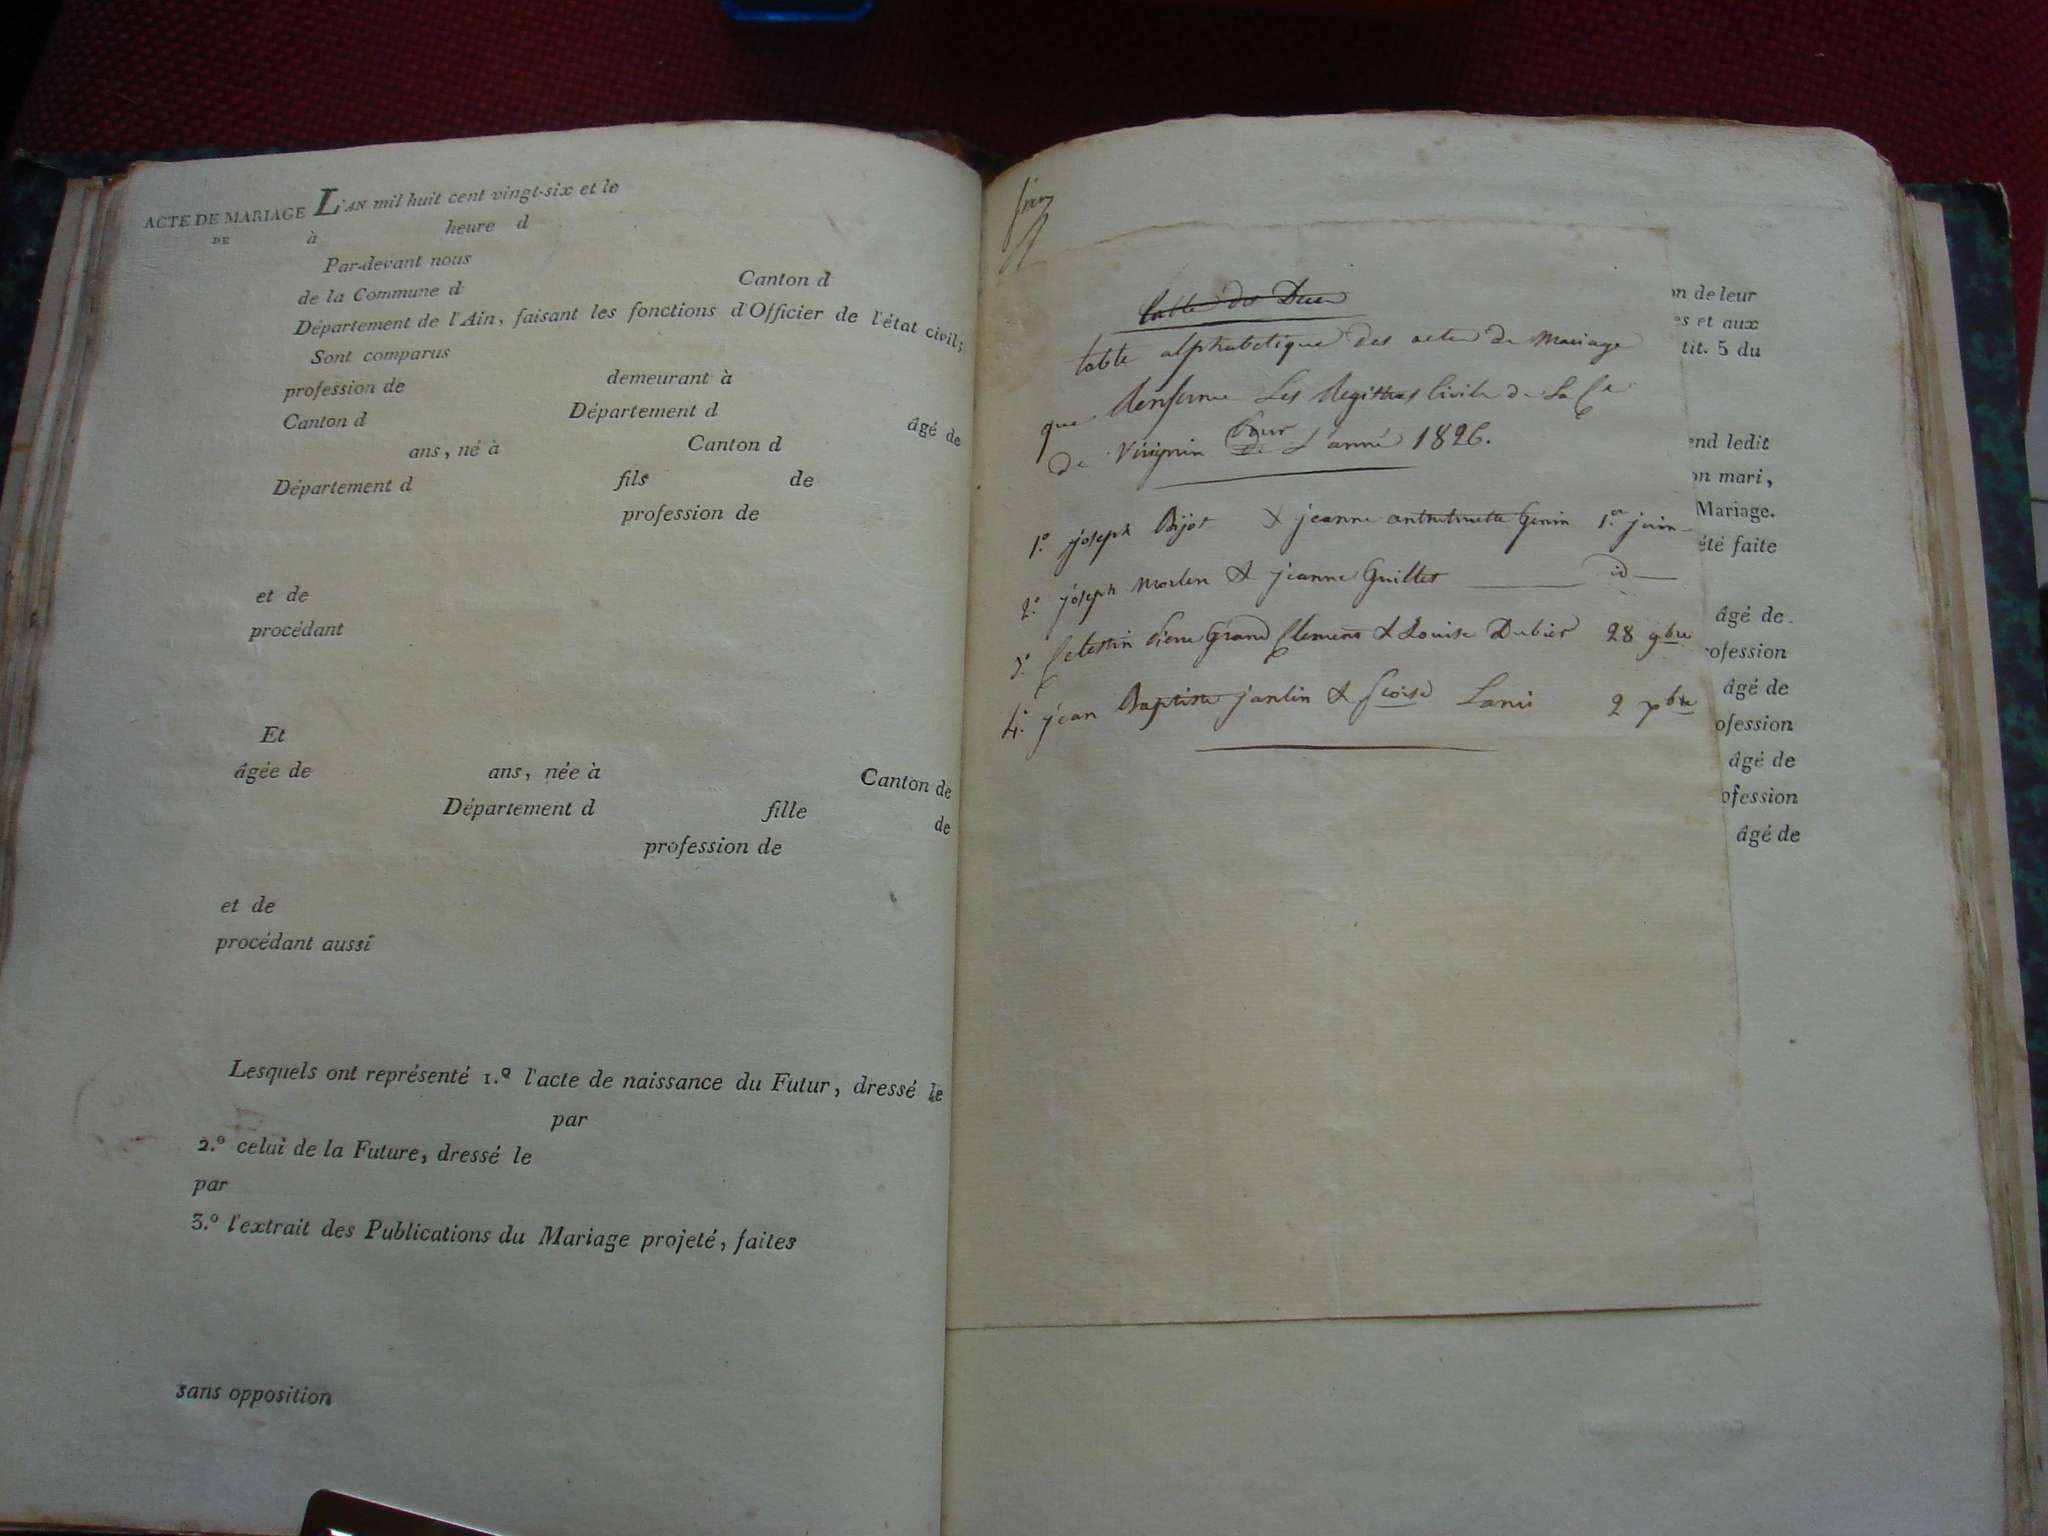 ACTE DE MARIAGE L'AN mil huit cent vingt-six et le
DE à heure d
Par-devant nous
de la Commune d Canton d
Département de l'Ain, faisant les fonctions d'Officier de l'état civil;
Sont comparus
profession de demeurant à
Canton d Département d âgé de
ans, né à Canton d
Département d fils de
profession de
et de
procédant
Et
âgée de ans, née à Canton de
Département d fille de
profession de
et de
procédant aussi
Lesquels ont représenté 1.º l'acte de naissance du Futur, dressé le
par
2.º celui de la Future, dressé le
par
3.º l'extrait des Publications du Mariage projeté, faites
sans opposition
table alphabetique des actes de mariage
que Renferme Les Registres Civils de La Cne
de Virignin pour L'année 1826.
1.º joseph Bijot & jeanne Genin 1.er juin
2.º joseph & jeanne Guillet id
3.º Celestin Pierre Grand Clement & Louise Dubier 28 9bre
4.º jean Baptiste janlin & fcoise 2 xbre
on de leur
es et aux
tit. 5 du
end ledit
on mari,
Mariage.
été faite
âgé de
ofession
âgé de
ofession
âgé de
ofession
âgé de